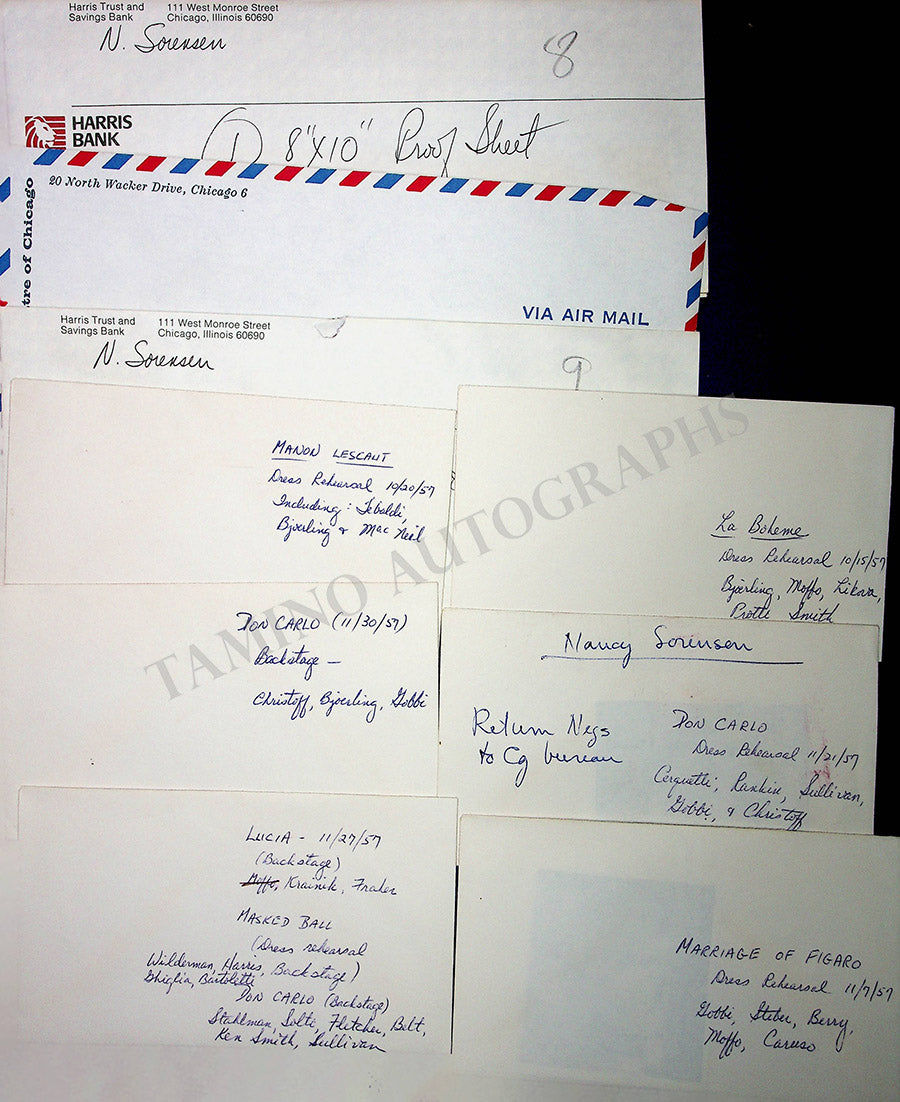 Harris Trust and
Savings Bank
111 West Monroe Street
Chicago, Illinois 60690
N. Sorensen
8
HARRIS
BANK
1 8"X10" Proof Sheet
20 North Wacker Drive, Chicago 6
tre of Chicago
VIA AIR MAIL
Harris Trust and
Savings Bank
111 West Monroe Street
Chicago, Illinois 60690
N. Sorensen
9
MANON LESCAUT
Dress Rehearsal 10/20/57
Including: Tebaldi,
Bjoerling & Mac Neil
La Boheme
Dress Rehearsal 10/15/57
Bjoerling, Moffo, Likova,
Protti Smith
DON CARLO (11/30/57)
Backstage —
Christoff, Bjoerling, Gobbi
Nancy Sorensen
Return Negs
to Cg bureau
DON CARLO
Dress Rehearsal 11/21/57
Cerquetti, Rankin, Sullivan,
Gobbi, & Christoff
LUCIA - 11/27/57
(Backstage)
Moffo, Krainik, Fraher
MASKED BALL
(Dress rehearsal
Wilderman, Harris, Backstage)
Ghiglia, Bartoletti
DON CARLO (Backstage)
Stahlman, Solti, Fletcher, Belt,
Ken Smith, Sullivan
MARRIAGE OF FIGARO
Dress Rehearsal 11/7/57
Gobbi, Steber, Berry,
Moffo, Caruso
TAMINO AUTOGRAPHS